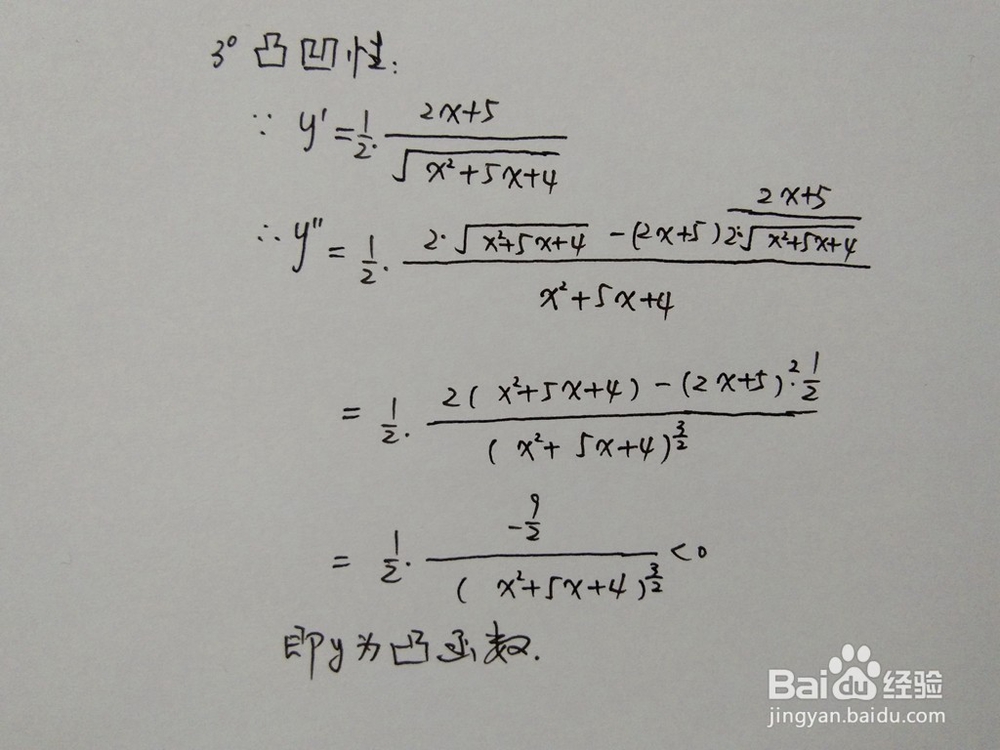 3° 凸凹性:
∵ y' = 1/2 · (2x+5)/√(x²+5x+4)
∴ y'' = 1/2 · (2·√(x²+5x+4) - (2x+5)(2x+5)/(2·√(x²+5x+4)))/(x²+5x+4)
= 1/2 · (2(x²+5x+4) - (2x+5)²·1/2)/(x²+5x+4)^(3/2)
= 1/2 · (-9/2)/(x²+5x+4)^(3/2) < 0
即y为凸函数.
Baidu经验
jingyan.baidu.com